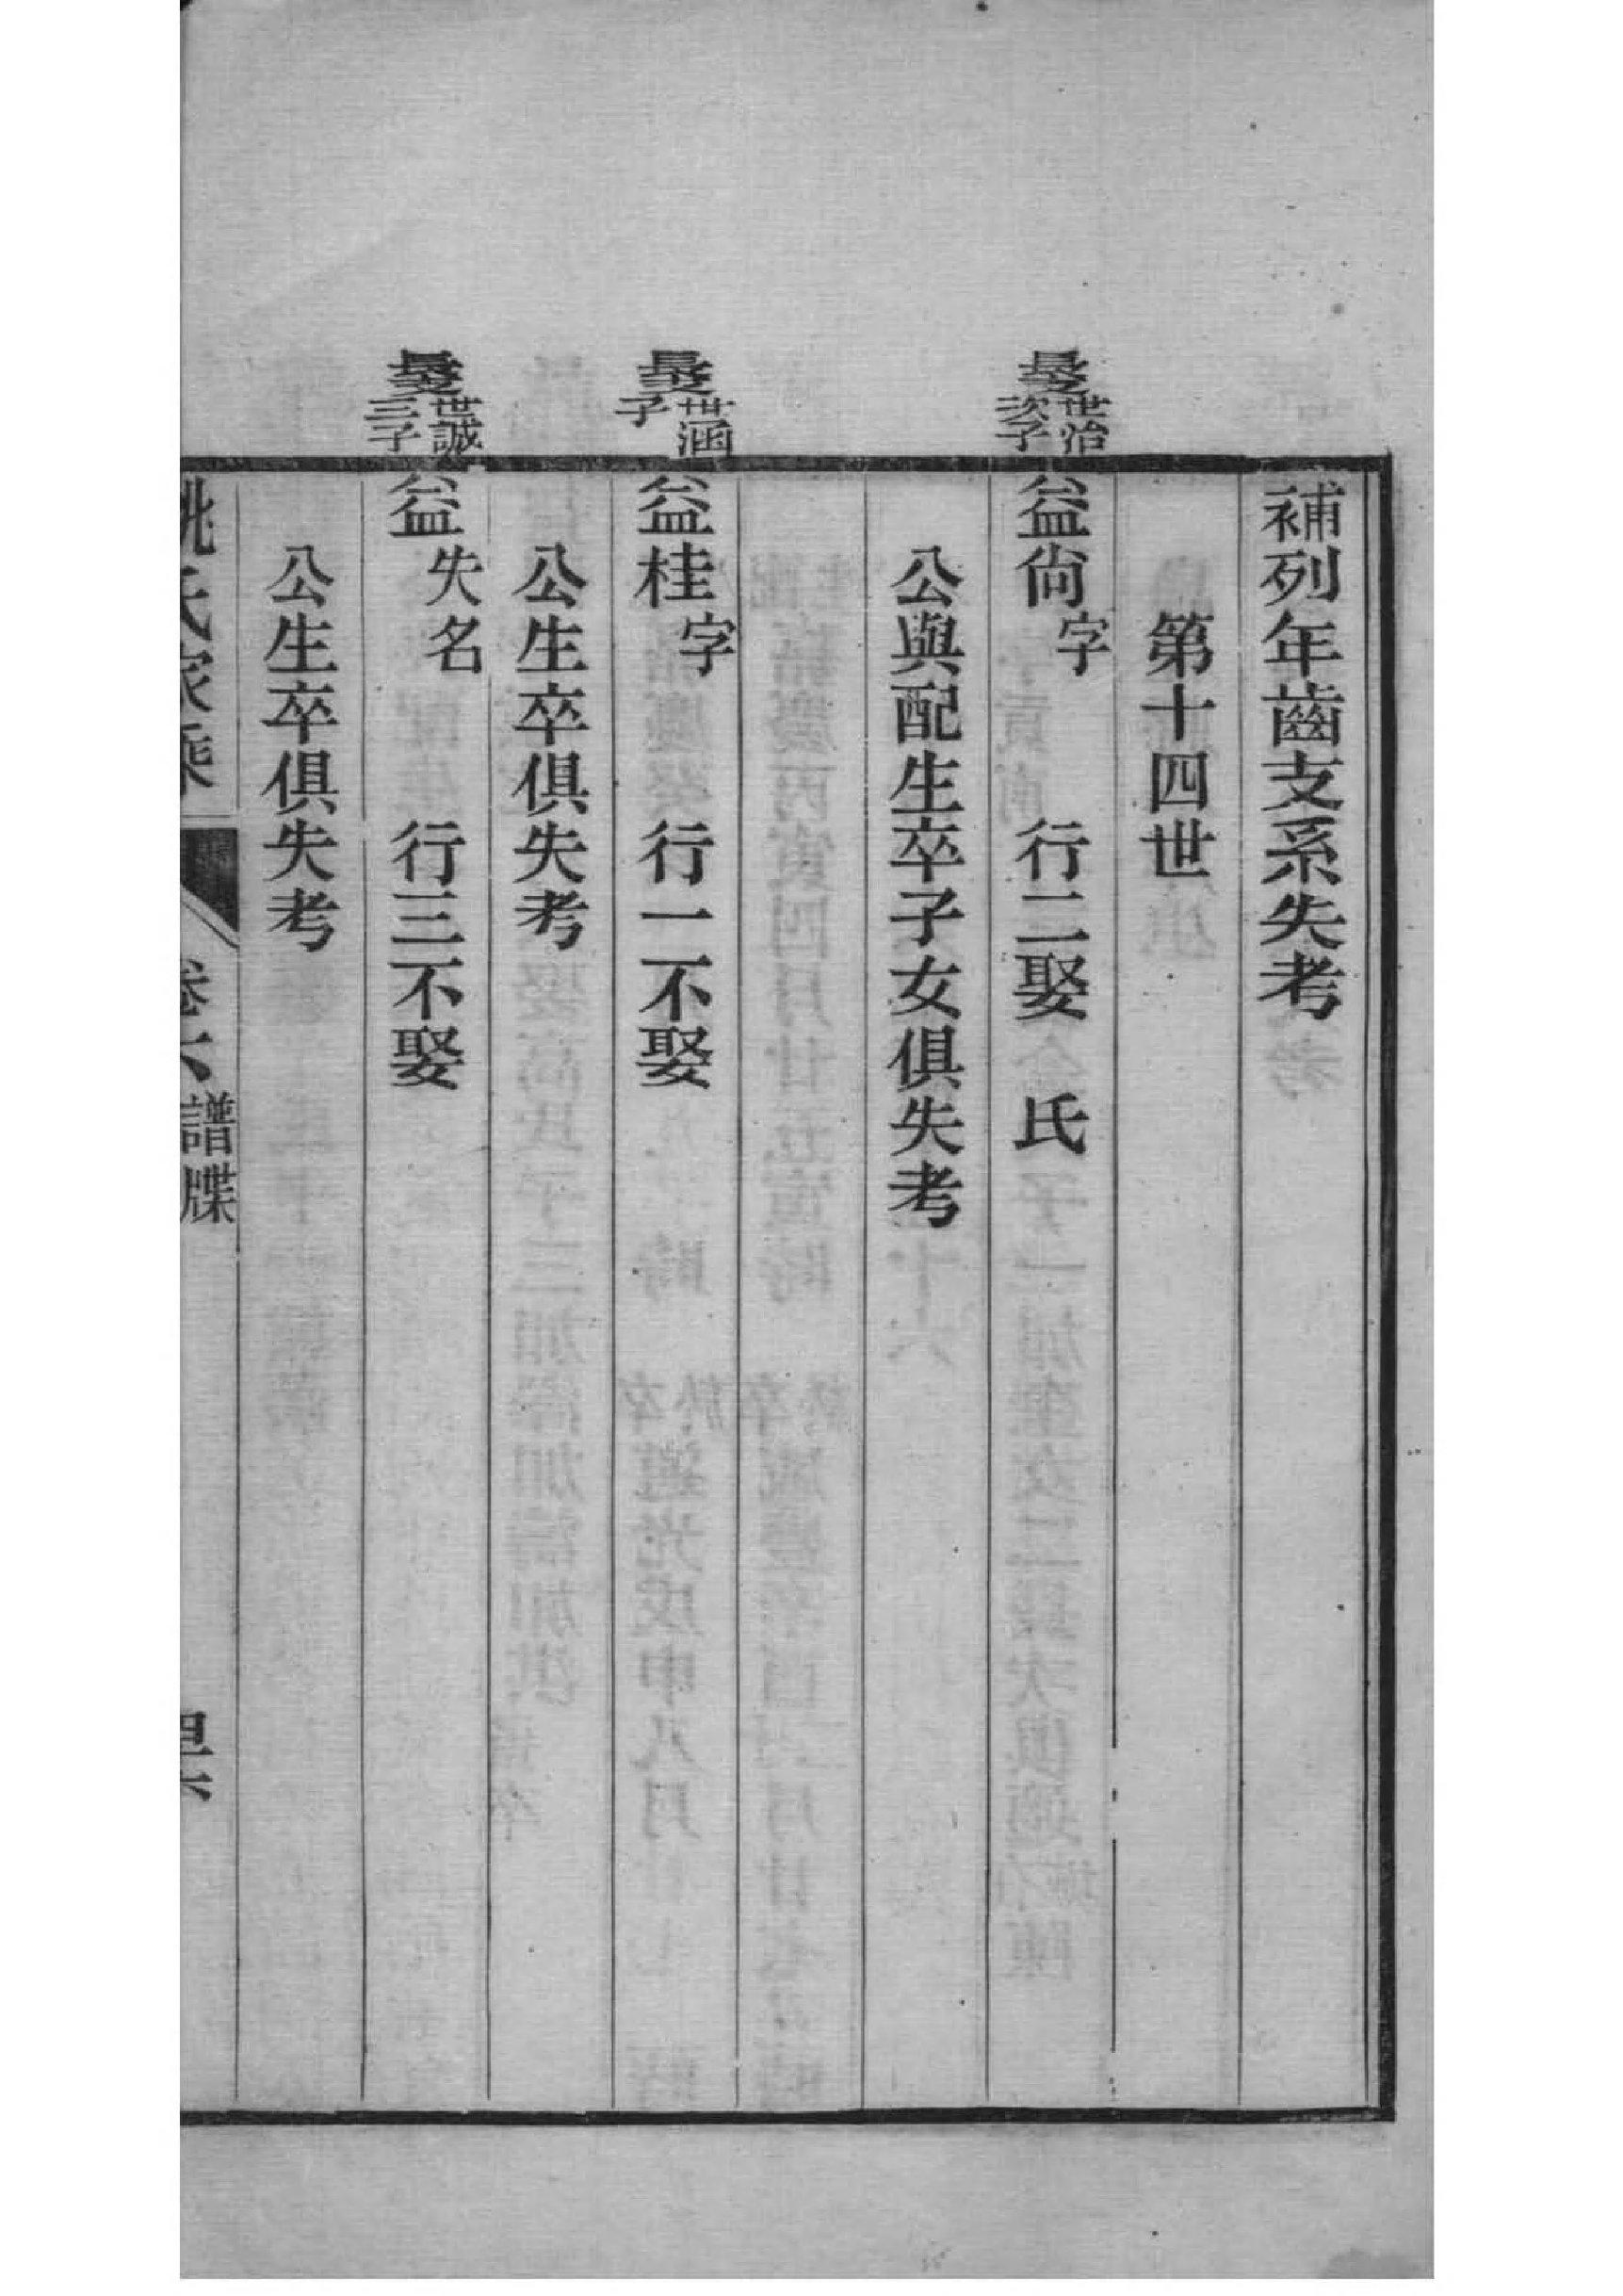 補列年齒支系失考
第十四世
長支世治次子
公益尙字 行二娶 氏
公與配生卒子女俱失考
長支世涵子
公益桂字 行一不娶
公生卒俱失考
長支世誠三子
公益失名 行三不娶
公生卒俱失考
姚氏家乘 卷六 譜牒